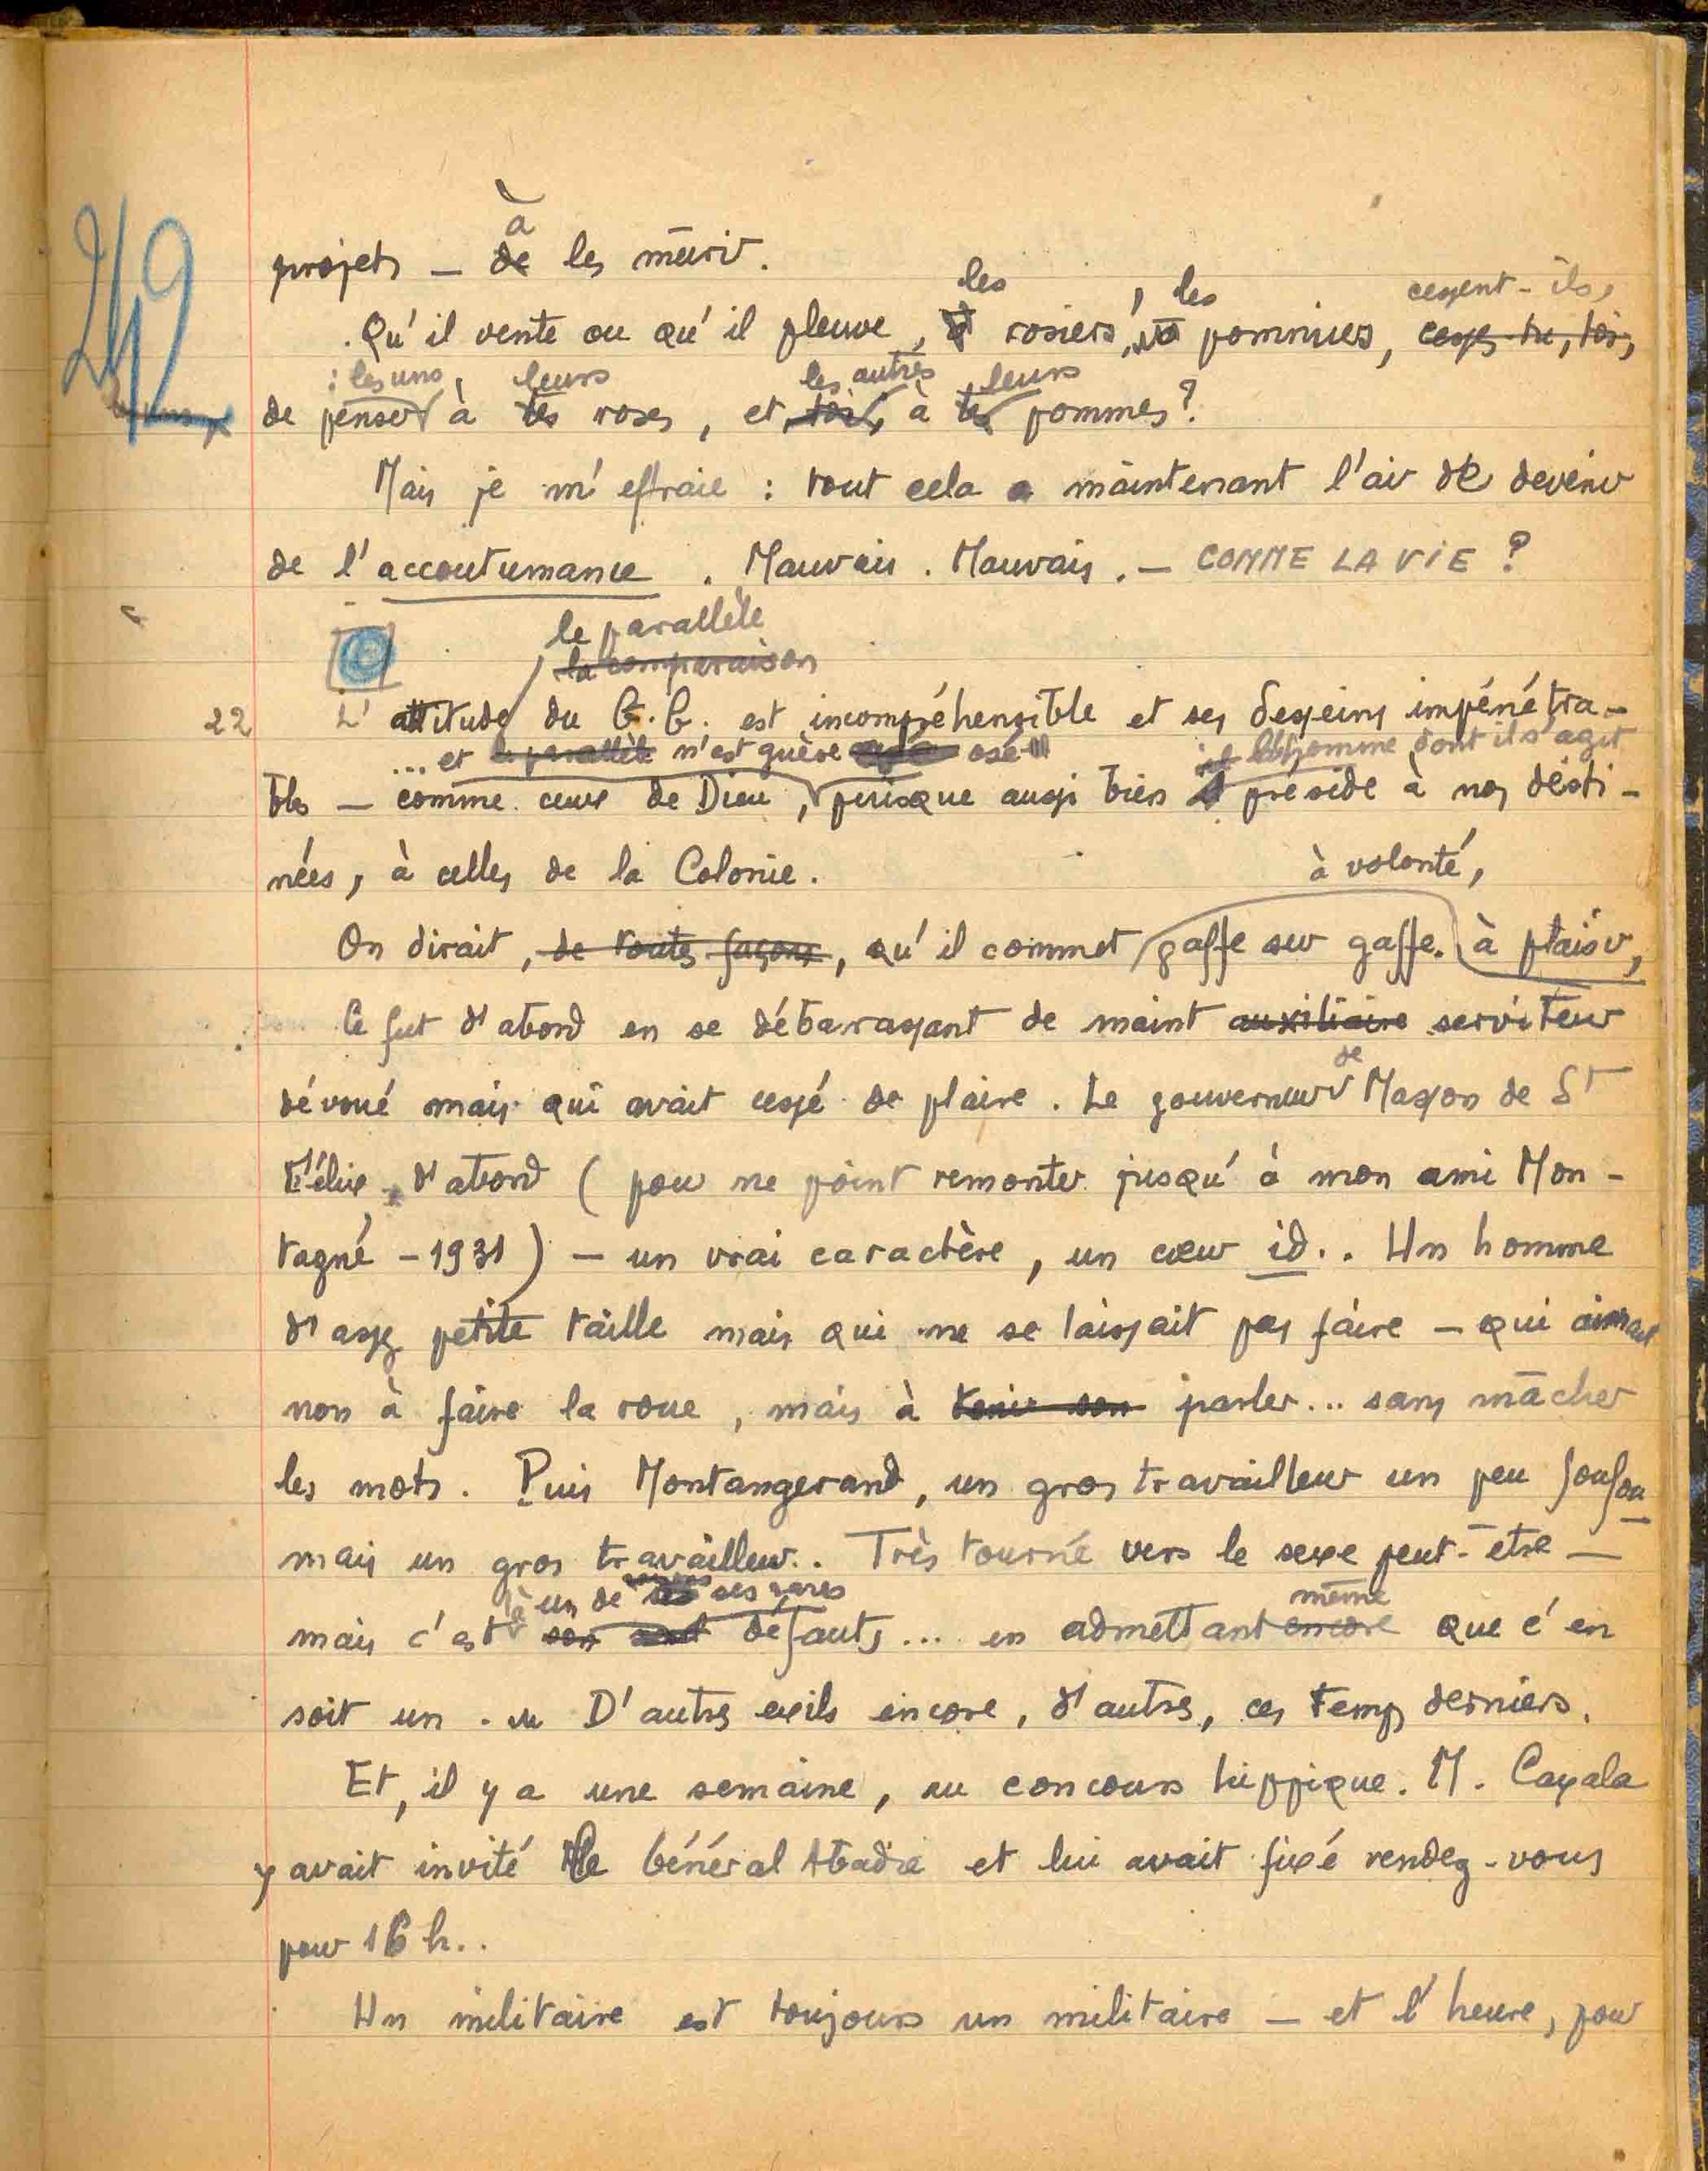 à
projets — de les mûrir.
les , les cessent-ils,
Qu'il vente ou qu'il pleuve, rosiers, pommiers, cesses-tu, toi,
: les uns, leurs les autres, leurs
de penser à tes roses, et toi, à tes pommes ?
242
Mais je m'effraie : tout cela a maintenant l'air de devenir
de l'accoutumance. Mauvais. Mauvais. — COMME LA VIE ?
le parallèle
la comparaison
22 L'attitude du G.G. est incompréhensible et ses desseins impénétra-
... et le parallèle n'est guère osé il l'homme dont il s'agit
bles — comme ceux de Dieu, puisque aussi bien préside à nos desti-
nées, à celles de la Colonie.
à volonté,
On dirait, de toutes façons, qu'il commet gaffe sur gaffe. à plaisir,
Ce fut d'abord en se débarassant de maint auxiliaire serviteur
de
dévoué mais qui avait cessé de plaire. Le gouverneur Masson de St
Félix, d'abord (pour ne point remonter jusqu'à mon ami Mon-
tagné - 1931) — un vrai caractère, un cœur id.. Un homme
d'assez petite taille mais qui ne se laissait pas faire — qui aimait
non à faire la roue, mais à tenir son parler... sans mâcher
les mots. Puis Montangerand, un gros travailleur un peu foufou
mais un gros travailleur.. Très tourné vers le sexe peut-être —
là un de ses rares même
mais c'est son seul défauts... en admettant encore que c'en
soit un. D'autres exils encore, d'autres, ces temps derniers.
Et, il y a une semaine, au concours hippique. M. Cayala
y avait invité le Général Abadie et lui avait fixé rendez-vous
pour 16 h..
Un militaire est toujours un militaire — et l'heure, pour